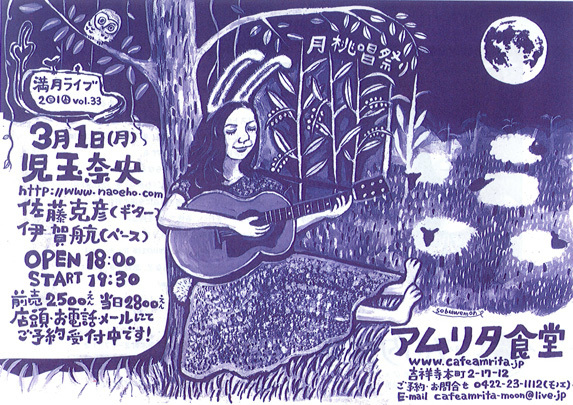 月桃唱祭り
満月ライブ
vol.33
3月1日(月)
児玉奈央
http://www.naoeho.com
佐藤克彦(ギター)
伊賀航(ベース)
OPEN 18:00
START 19:30
前売2500え 当日2800え
店頭・お電話・メールにて
ご予約受付中です!
sobuwemon
アムリタ食堂
www.cafeamrita.jp
吉祥寺本町2-17-12
ご予約・お問合せ 0422-23-1112(モリエ)
E-mail cafeamrita-moon@live.jp